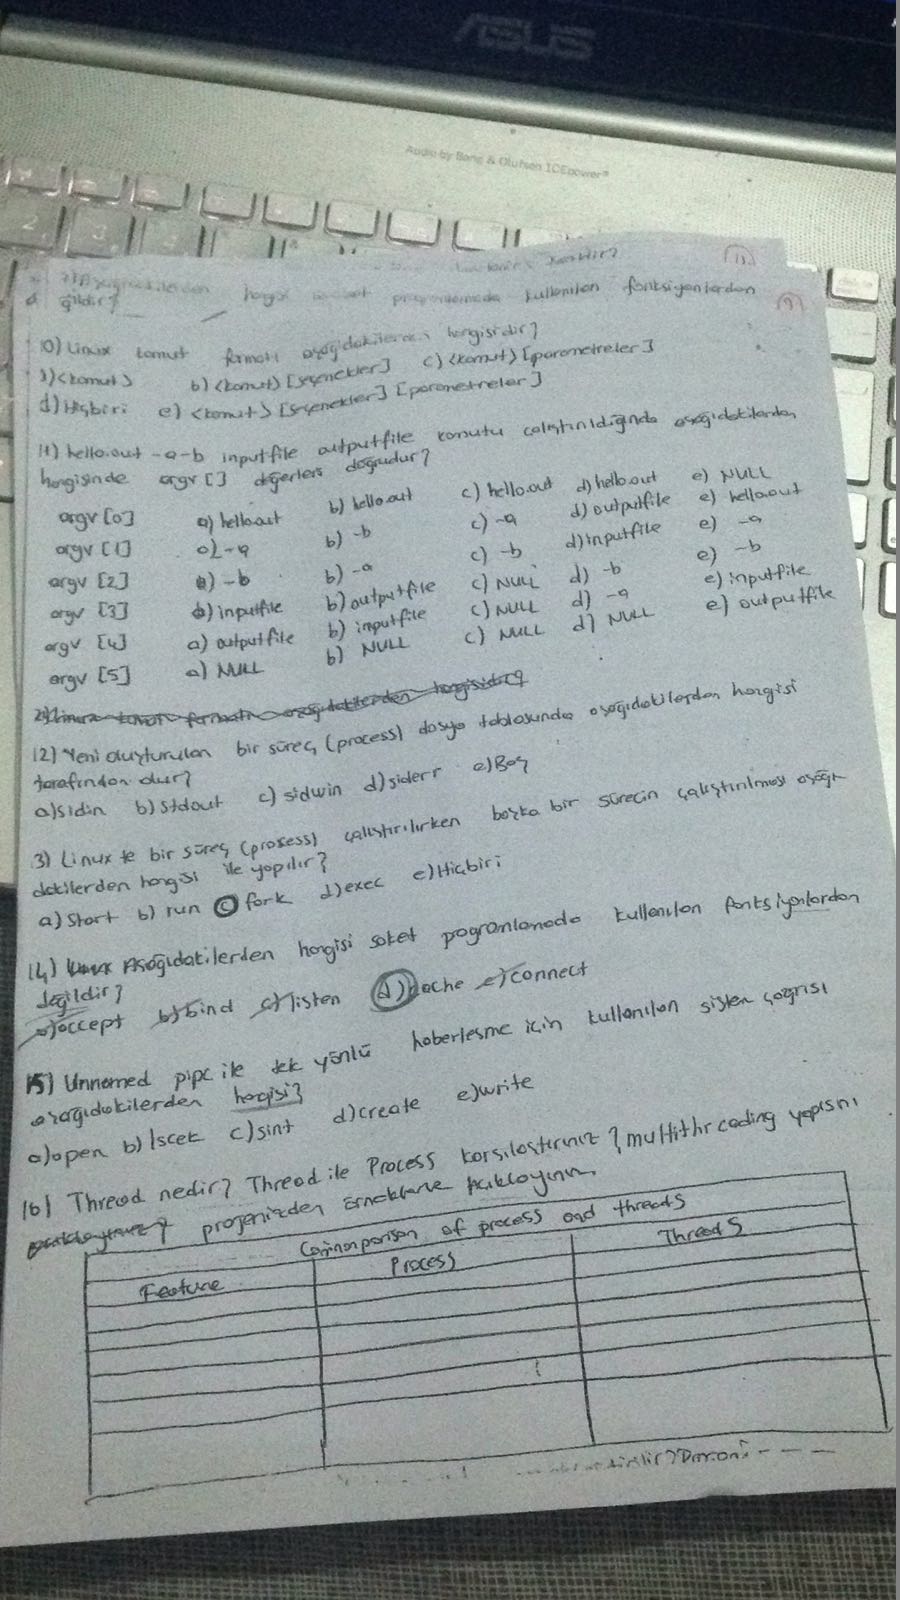 ASUS
Audio by Bang & Olufsen ICEpower®
13
hangisi programlamada kullanılan fonksiyonlardan
ğildir?
9
10) Linux komut formatı aşağıdakilerden hangisidir?
a) <komut> b) <komut> [seçenekler] c) <komut> [parametreler]
d) Hiçbiri e) <komut> [seçenekler] [parametreler]
11) hello.out -a-b inputfile outputfile komutu çalıştırıldığında aşağıdakilerden
hangisinde argv [] değerleri doğrudur?
argv [0] a) hello.out b) hello.out c) hello.out d) hello.out e) NULL
argv [1] a) -a b) -b c) -a d) outputfile e) hello.out
argv [2] a) -b b) -a c) -b d) inputfile e) -a
argv [3] a) inputfile b) outputfile c) NULL d) -b e) -b
argv [4] a) outputfile b) inputfile c) NULL d) -a e) inputfile
argv [5] a) NULL b) NULL c) NULL d) NULL e) outputfile
12) Yeni oluşturulan bir süreç (process) dosya tablosunda aşağıdakilerden hangisi
tarafından olur?
a) sidin b) stdout c) sidwin d) siderr e) Boş
3) Linux te bir süreç (prosess) çalıştırılırken başka bir sürecin çalıştırılması aşağı-
dakilerden hangisi ile yapılır?
a) Start b) run c) fork d) exec e) Hiçbiri
14) Aşağıdakilerden hangisi soket pogramlamada kullanılan fonksiyonlardan
değildir?
a) accept b) bind c) listen d) cache e) connect
15) Unnamed pipe ile tek yönlü haberleşme için kullanılan sistem çağrısı
aşağıdakilerden hangisi?
a) open b) lseek c) sint d) create e) write
16) Thread nedir? Thread ile Process karşılaştırınız? multithreading yapısını
projenizden örneklerle açıklayınız
Comparison of process and threads
Feature Process Threads